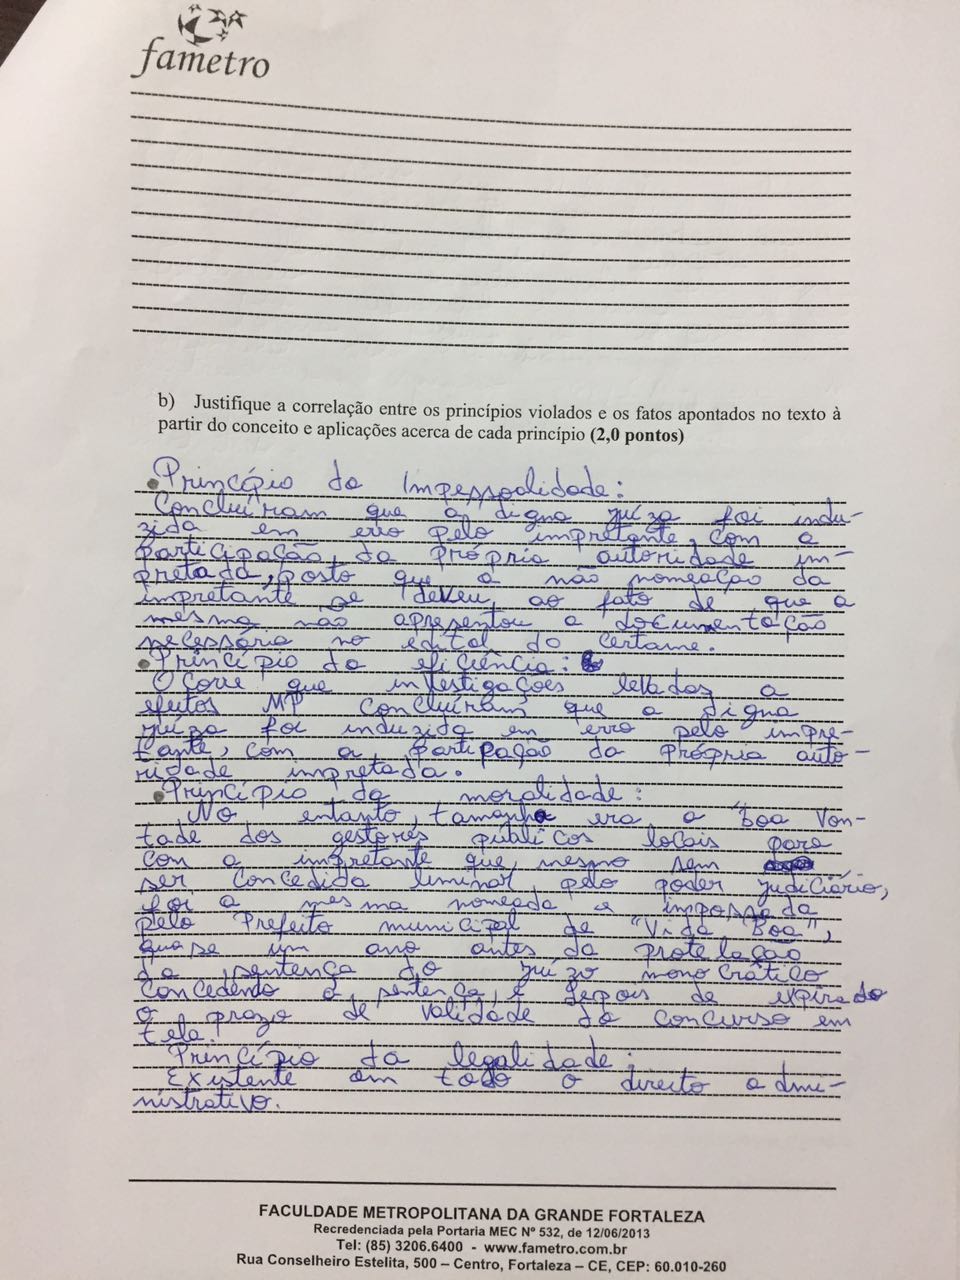 fametro
b) Justifique a correlação entre os princípios violados e os fatos apontados no texto à
partir do conceito e aplicações acerca de cada princípio (2,0 pontos)
Princípio da Impessoalidade:
Concluíram que a digna juíza foi indu-
zida em erro pelo impretante, com a
participação da própria autoridade im-
pretada, posto que a não nomeação da
impretante se deveu ao fato de que a
mesma não apresentou a documentação
necessária no edital do certame.
Princípio da eficiência:
Ocorre que investigações levadas a
efeitos MP concluíram que a digna
juíza foi induzida em erro pelo impre-
tante, com a partipação da própria auto-
ridade impretada.
Princípio da moralidade:
No entanto, tamanha era a "boa von-
tade dos gestores públicos locais para
com a impretante que, mesmo sem
ser concedida liminar pelo poder judiciário,
foi a mesma nomeada e impossada
pelo Prefeito municipal de "Vida Boa",
quase um ano antes da protelação
da sentença do juízo monocrático
concedendo a sentença, e depois de expirado
o prazo de validade do concurso em
tela!
Princípio da legalidade:
Existente em todo o direito admi-
nistrativo.
FACULDADE METROPOLITANA DA GRANDE FORTALEZA
Recredenciada pela Portaria MEC Nº 532, de 12/06/2013
Tel: (85) 3206.6400 - www.fametro.com.br
Rua Conselheiro Estelita, 500 – Centro, Fortaleza – CE, CEP: 60.010-260